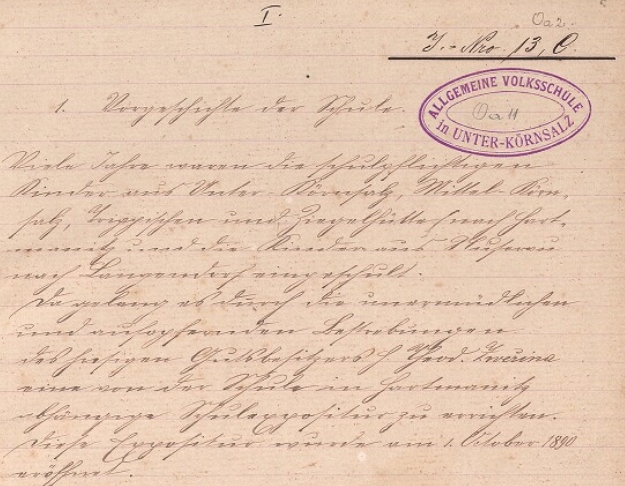 I.
Oa 2.
J.-Nro. 13, C.
ALLGEMEINE VOLKSSCHULE
Oa 11
in UNTER-KÖRNSALZ
1. Vorgeschichte der Schule.
Viele Jahre waren die schulpflichtigen
Kinder aus Unter-Körnsalz, Mittel-Körn-
salz, Trippischen und Ziegelhütte nach Hart-
manitz und die Kinder aus Nuserau
nach Langendorf eingeschult.
Da gelang es durch die unermüdlichen
und aufopfernden Bestrebungen
des hiesigen Gutsbesitzers H Theod. Zwerina
eine von der Schule in Hartmanitz
abhängige Schulexpositur zu errichten.
Diese Expositur wurde am 1. October 1890
eröffnet.